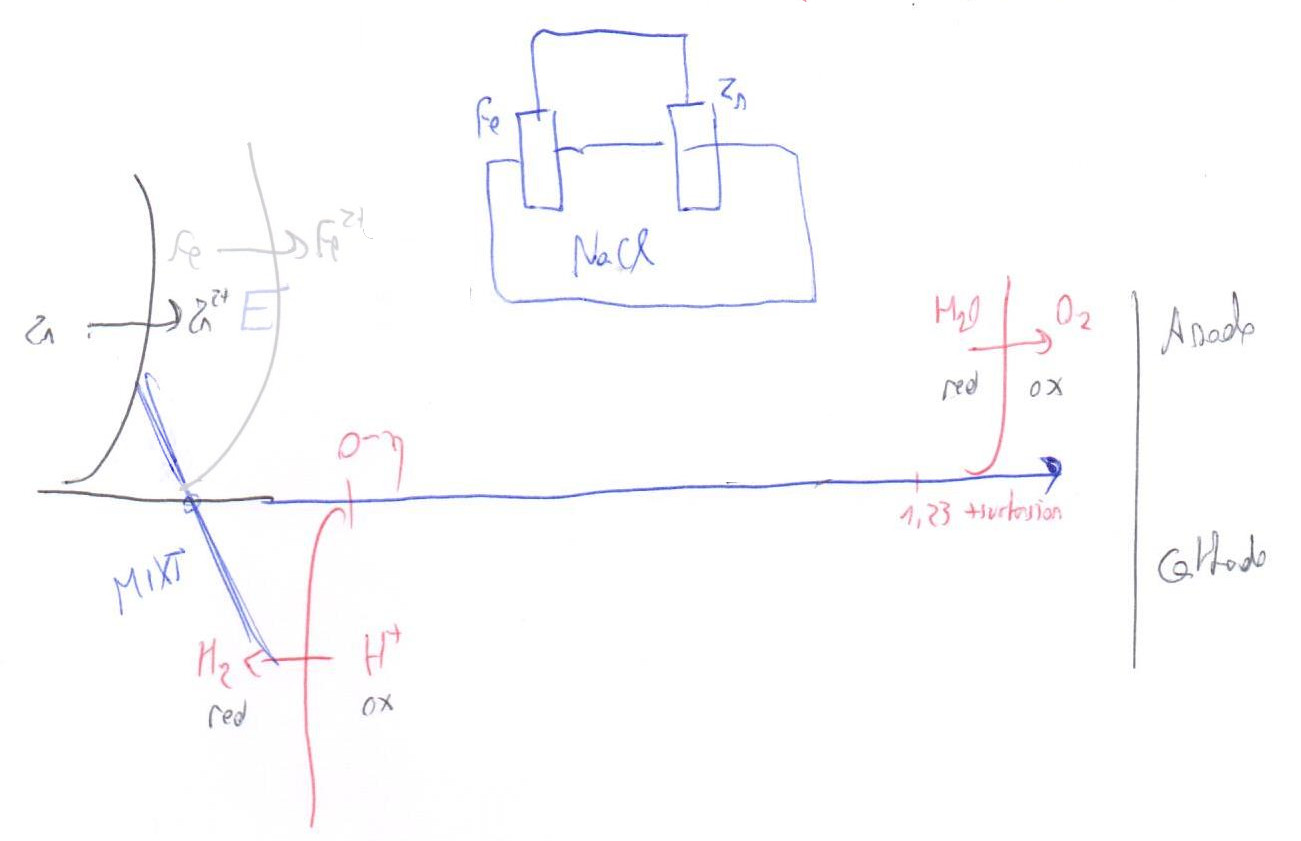 Fe
Zn
NaCl
Fe → Fe²⁺
Zn → Zn²⁺
E
H₂O → O₂
red ox
Anode
0-η
1,23 +surtension
MIXT
Cathode
H₂ ← H⁺
red ox